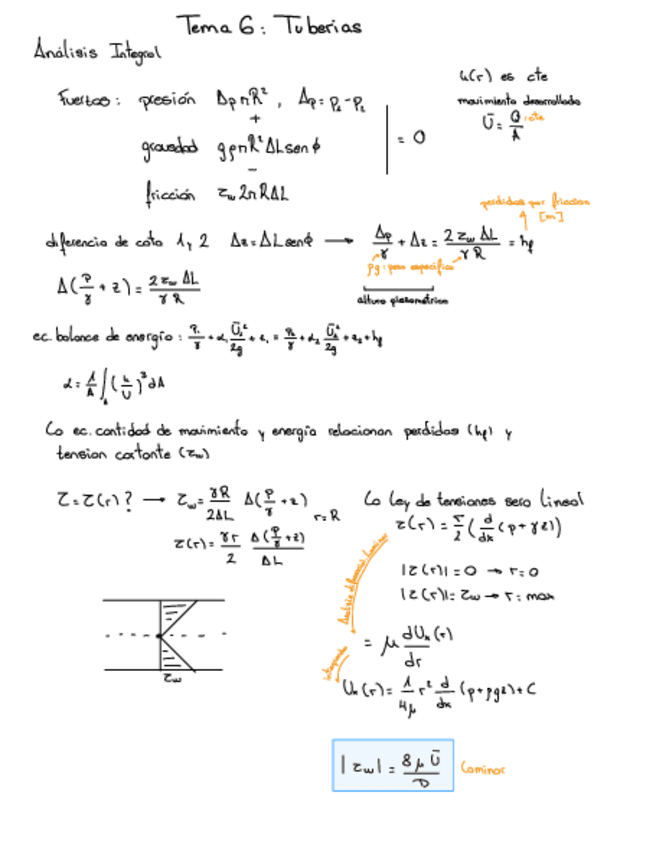 Tema 6: Tuberias
Análisis Integral
u(r) es cte
movimiento desarrollado
Ū = Q/A : cte
Fuerzas: presión Δp π R², Δp = p₁ - p₂
+
gravedad g ρ π R² ΔL sen ϕ = 0
-
fricción τw 2π R ΔL
perdidas por friccion
[m]
diferencia de cota 1 y 2 Δz = ΔL sen ϕ → Δp/γ + Δz = 2 τw ΔL / γ R = hf
ρg: peso especifico
altura piezometrica
Δ(p/γ + z) = 2 τw ΔL / γ R
ec. balance de energía: p₁/γ + α₁ Ū₁²/2g + z₁ = p₂/γ + α₂ Ū₂²/2g + z₂ + hf
α = 1/A ∫A (u/Ū)³ dA
La ec. cantidad de movimiento y energía relacionan perdidas (hf) y
tension cortante (τw)
τ = τ(r)? → τw = γR/2ΔL Δ(p/γ + z)
r = R
τ(r) = γr/2 Δ(p/γ + z)/ΔL
La ley de tensiones sera lineal
τ(r) = r/2 (d/dx (p + γz))
|τ(r)| = 0 → r = 0
|τ(r)| = τw → r = max
Analisis diferencial laminar
= μ dUx(r)/dr
integrando
Ux(r) = 1/4μ r² d/dx (p + ρgz) + C
τw
|τw| = 8 μ Ū / D Laminar